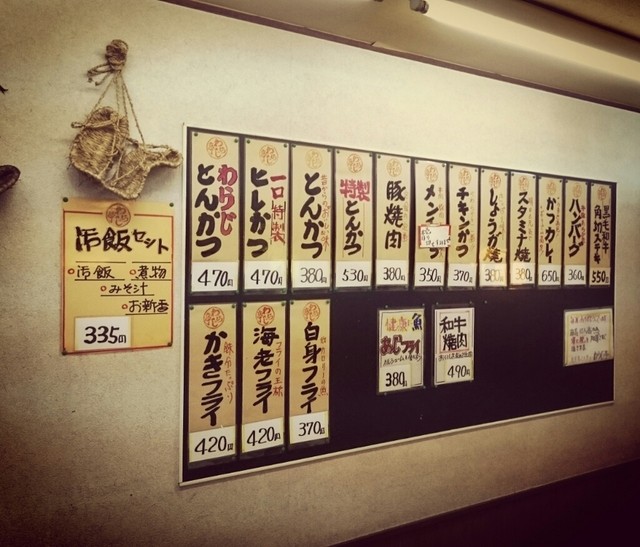 御飯セット
○御飯 ○煮物
○みそ汁
○お新香
335円
わらじ
とんかつ
470円
一口特製
ヒレかつ
470円
とんかつ
380円
特製
とんかつ
530円
豚焼肉
380円
メンチ
350円
チキンかつ
370
しょうが焼
380
スタミナ焼
380
かつカレー
650
ハンバーグ
360
黒毛和牛
角切ステーキ
550円
かきフライ
420円
フライの王様
海老フライ
420円
白身フライ
370円
健康魚
あじフライ
380円
和牛
焼肉
490円